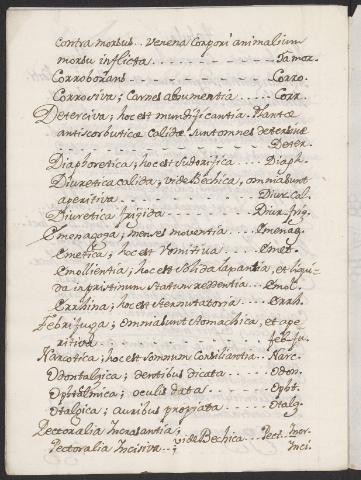 contra morbus.. venena corpori animalium
morsu inflicta . . . . . . . . . . Tamor.
Corroborans . . . . . . . . . . Corro.
Corrosiva; Carnes absumentia . . . . Corr.
Deterciva; hoc est mundificantia. Plantæ
antiscorbuticæ calidæ sunt omnes detersivæ
. . . . . . . . . . Deter.
Diaphoretica; hoc est sudorifica . . . . Diaph.
Diuretica calida, vide Bechica, omnia sunt
aperitiva . . . . . . . . . . Diur. cal.
Diuretica frigida . . . . . . . Diur. frig.
Emenagoga; menses moventia . . . . Emenag.
Emetica; hoc est Vomitiva . . . . Emet.
Emollientia; hoc est solida laxantia, et liqui-
da in pristinum statum reddentia . . Emol.
Errhina; hoc est sternutatoria . . . Errh.
Febrifuga; omnia sunt stomachica, et ape
ritiva . . . . . . . . . . feb. fu.
Narcotica; hoc est somnum conciliantia . . Narc.
Odontalgica; dentibus dicata . . . . Odon.
Opthalmica; oculis data . . . . Opht.
Otalgica; auribus propriata . . . . Otalg.
Pectoralia Incrasantia; vide Bechica . . Pect. Incr.
Pectoralia Incisiva . . ; Inci.